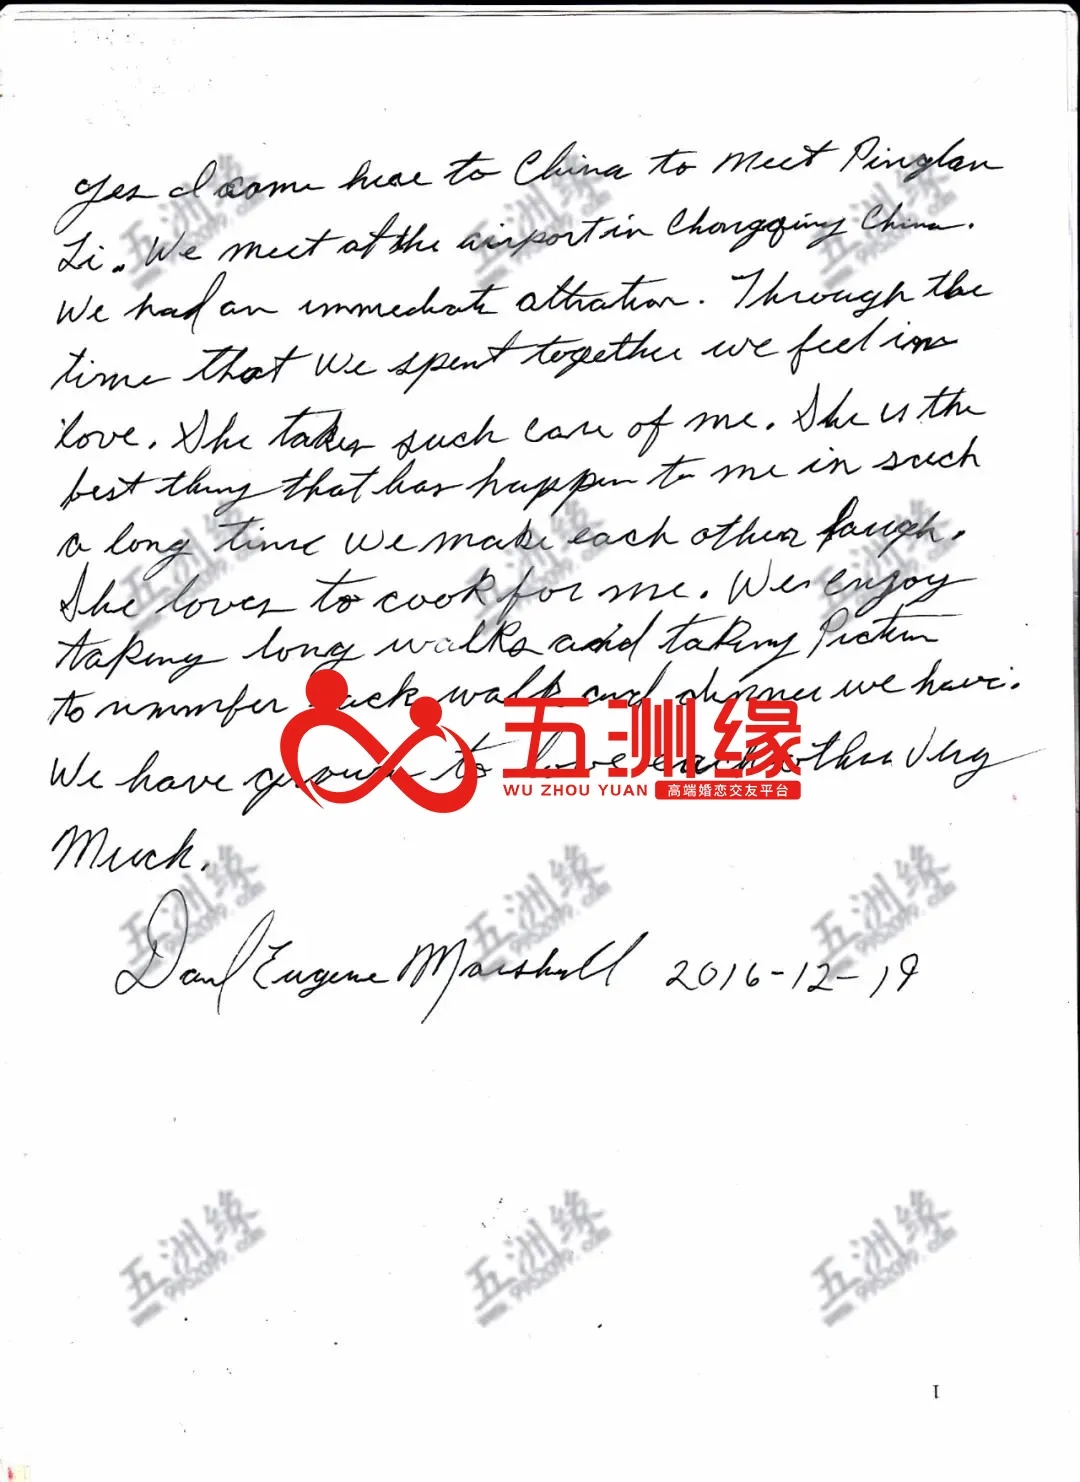 Yes I come here to China to meet Pinglan
Li. We meet at the airport in Chongqing China.
We had an immediate attration. Through the
time that we spent together we feel in
love. She takes such care of me. She is the
best thing that has happen to me in such
a long time we make each other laugh.
She loves to cook for me. We enjoy
taking long walks and taking Picture
to rember each walk and dinner we have.
五洲缘
We have grown to love each other Very
WU ZHOU YUAN 高端婚恋交友平台
Much.
Eugene Marshall 2016-12-19
五洲缘
www.9952099.com
1